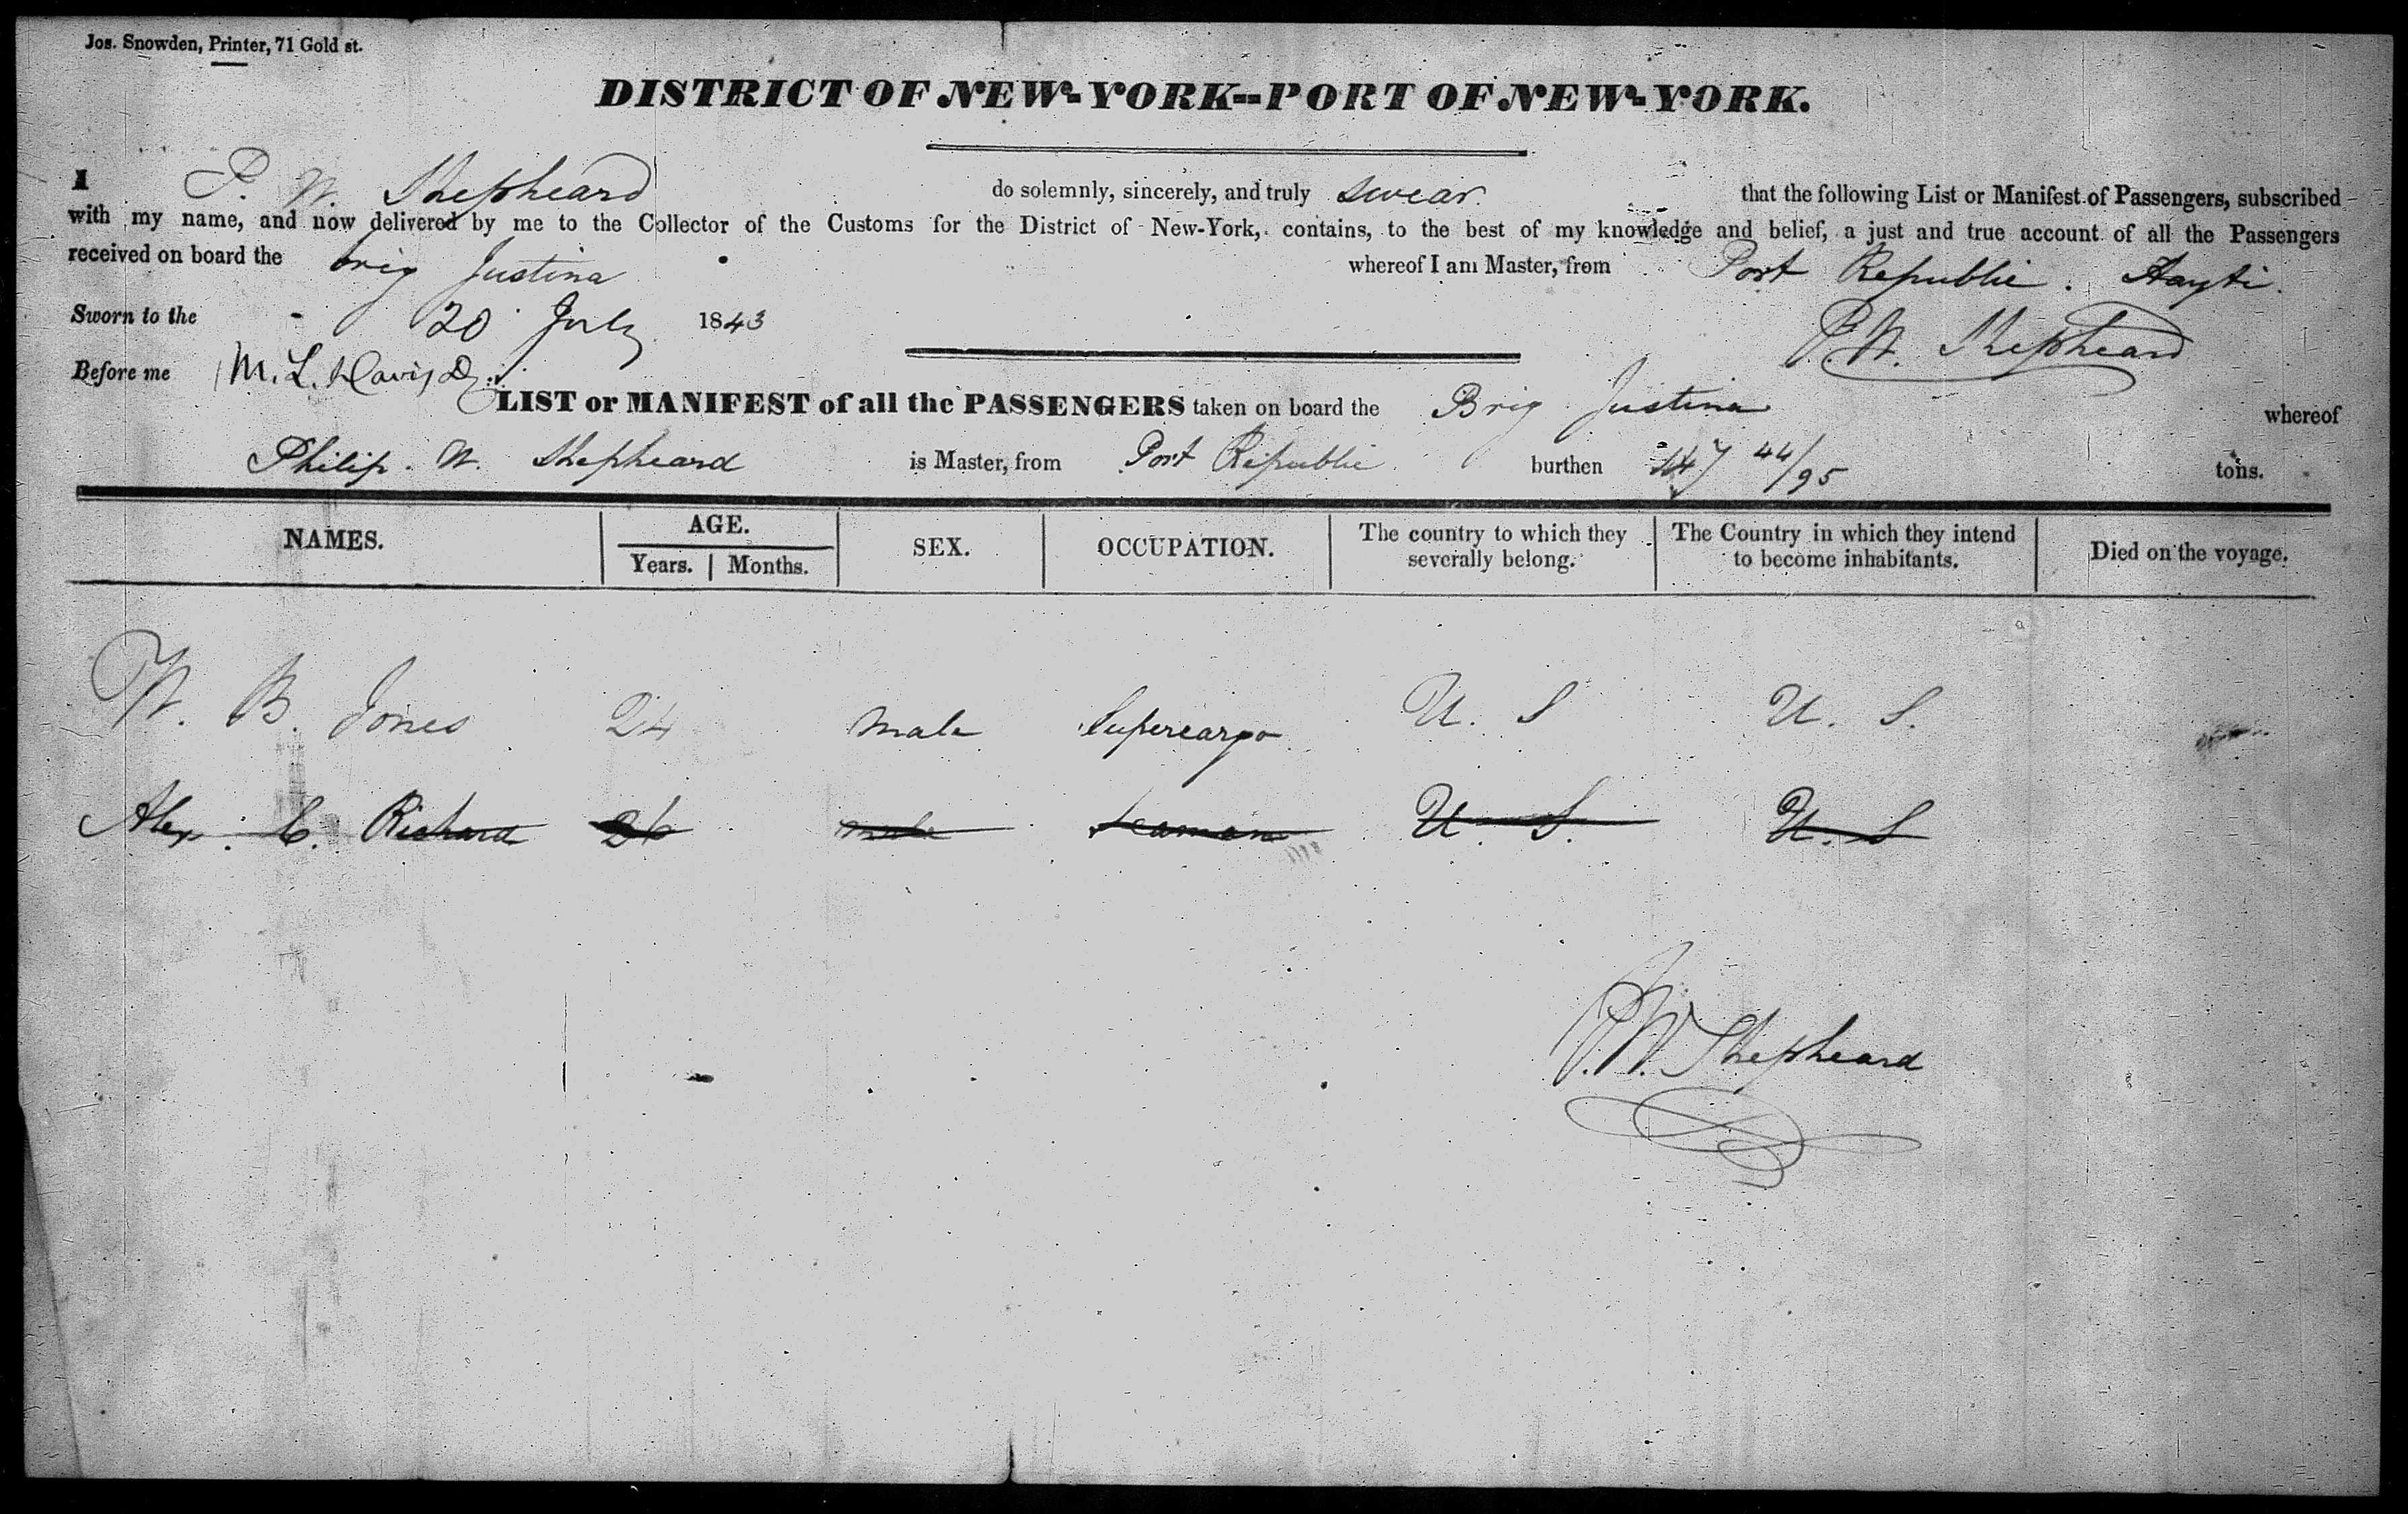 Jos. Snowden, Printer, 71 Gold st.
DISTRICT OF NEW-YORK--PORT OF NEW-YORK.
I P. W. Shepheard do solemnly, sincerely, and truly swear that the following List or Manifest of Passengers, subscribed
with my name, and now delivered by me to the Collector of the Customs for the District of New-York, contains, to the best of my knowledge and belief, a just and true account of all the Passengers
received on board the brig Justina whereof I am Master, from Port Republic. Hayti.
Sworn to the 20 July 1843
P. W. Shepheard
Before me M. L. Davis
LIST or MANIFEST of all the PASSENGERS taken on board the Brig Justina whereof
Philip. W. Shepheard is Master, from Port Republic burthen 147 44/95 tons.
NAMES. AGE. Years. Months. SEX. OCCUPATION. The country to which they severally belong. The Country in which they intend to become inhabitants. Died on the voyage.
W. B. Jones 24 male Supercargo U. S U. S.
Alex. C. Richard 26 male Seaman U. S. U. S
P. W. Shepheard